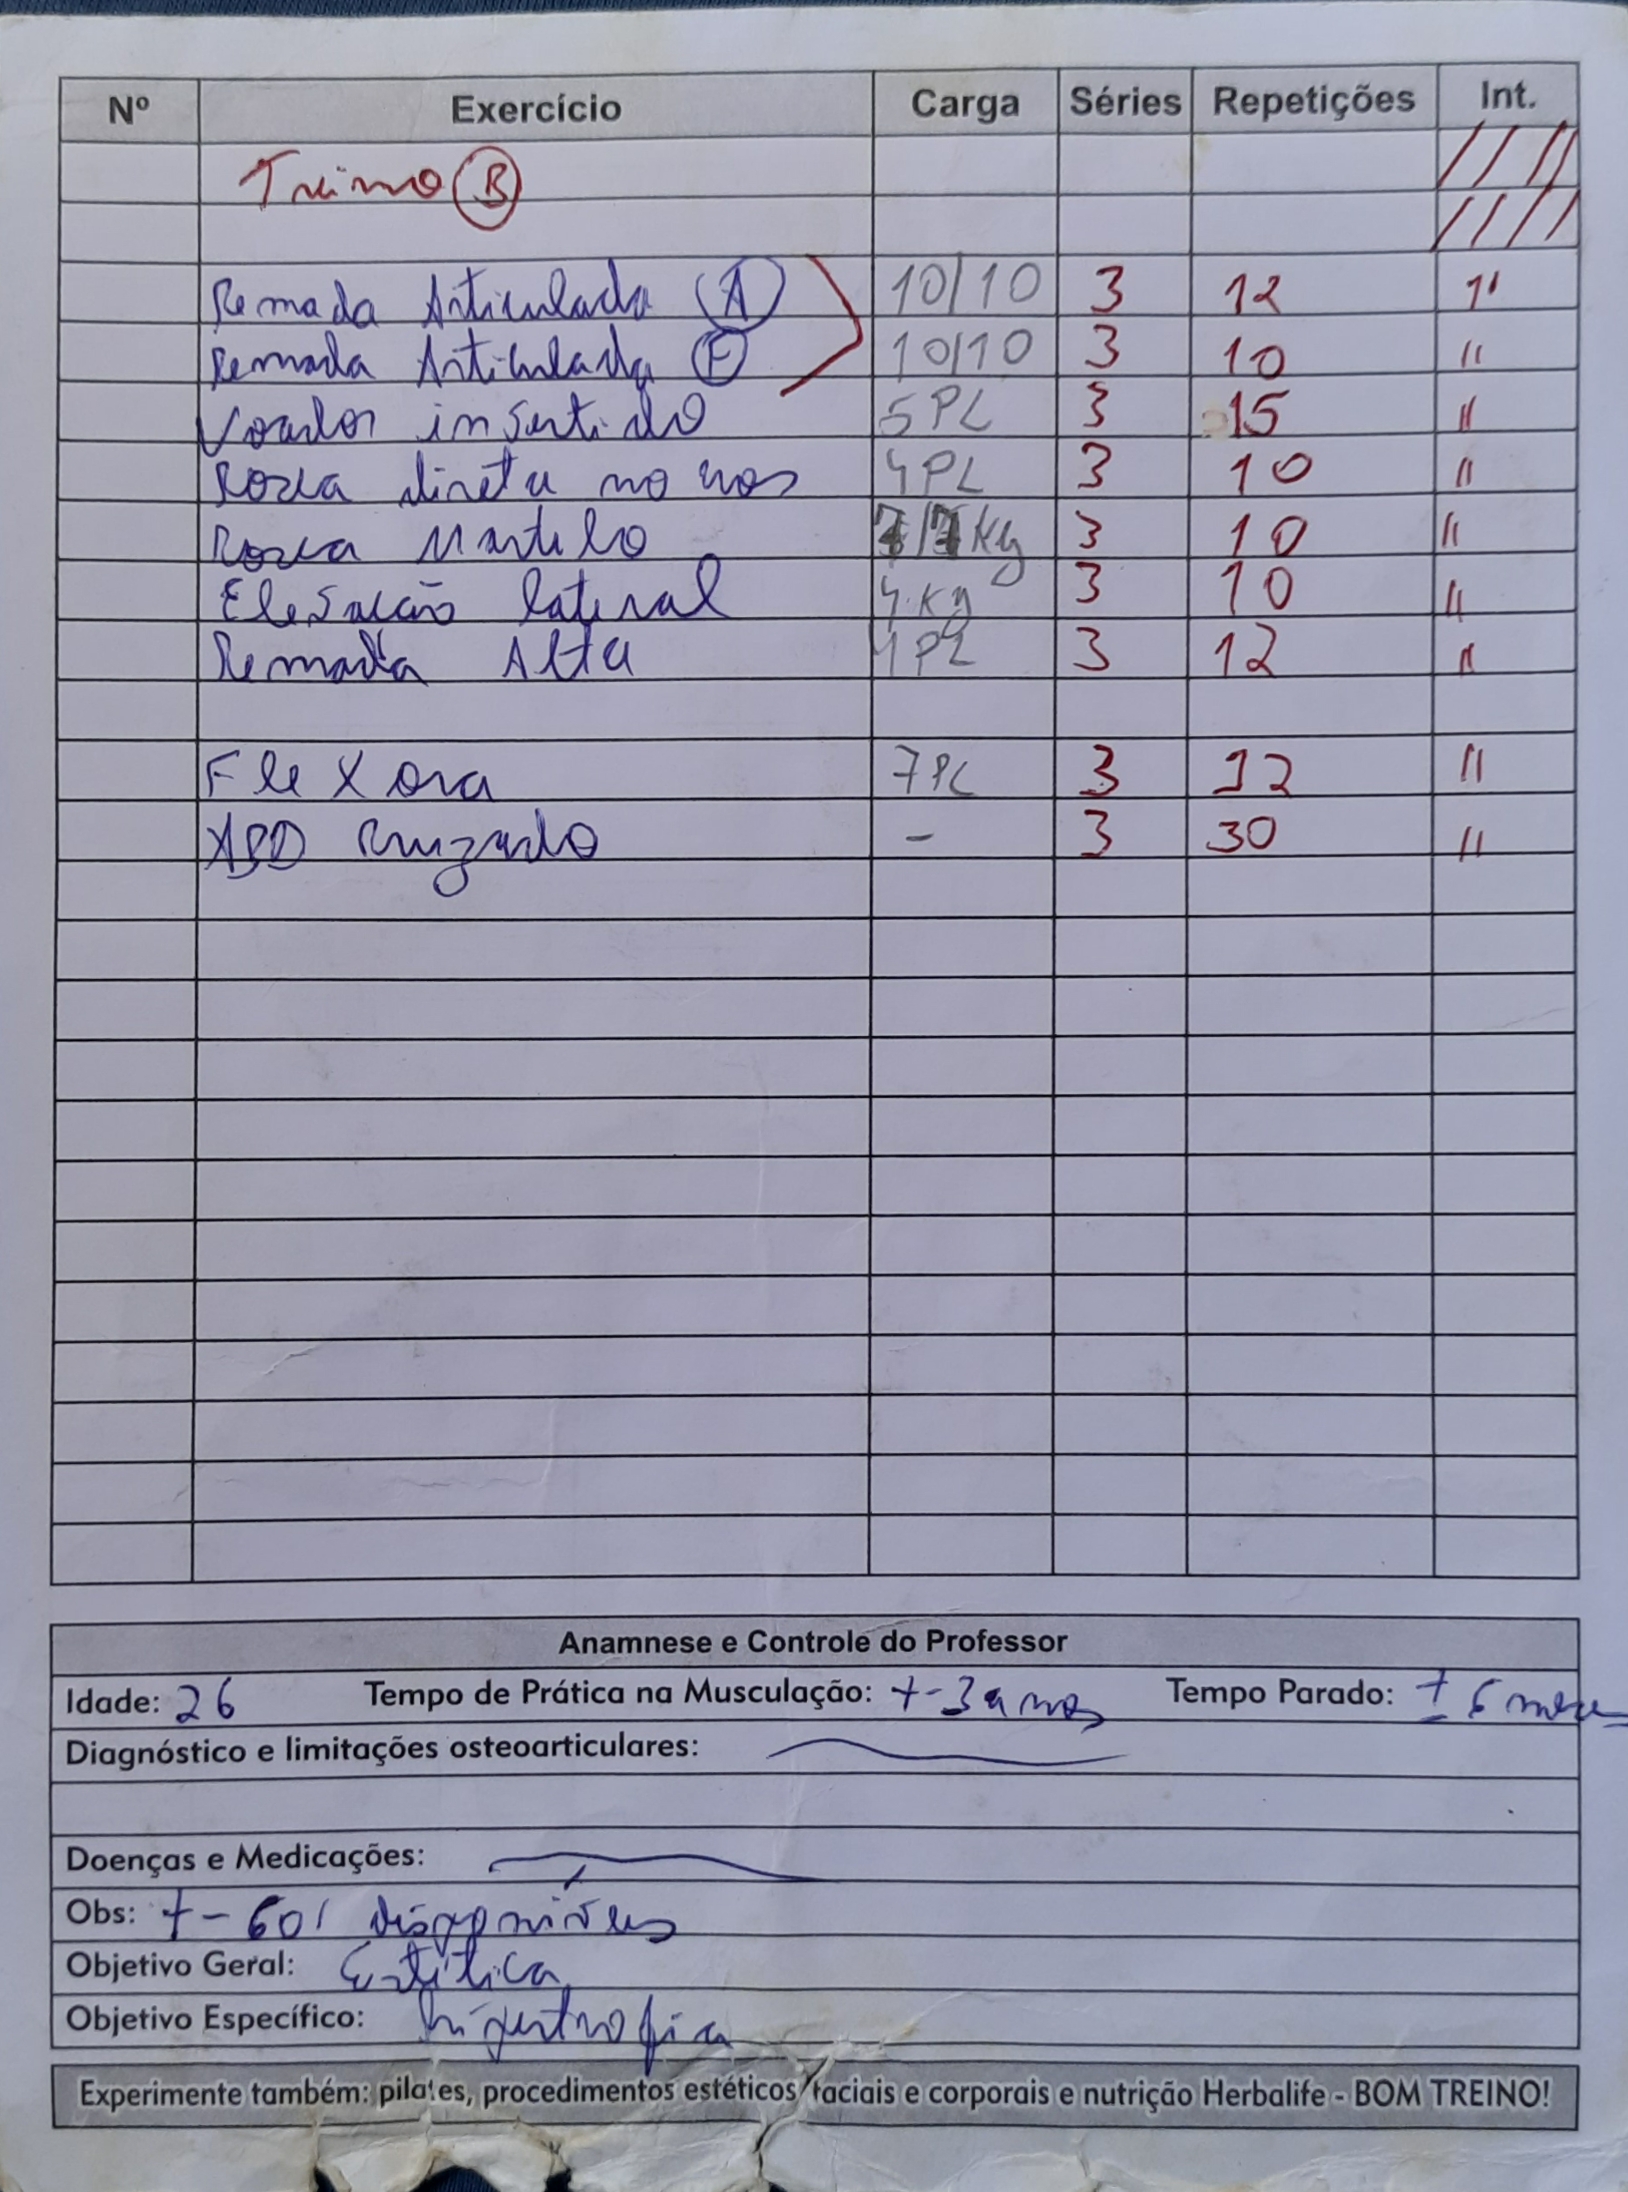 Nº Exercício Carga Séries Repetições Int.
Treino B
Remada Articulada A 10/10 3 12 1'
Remada Articulada F 10/10 3 10 "
Voador invertido 5 PL 3 15 "
Rosca direta no cros 4 PL 3 10 "
Rosca Martelo 7/7 Kg 3 10 "
Elevação lateral 4 Kg 3 10 "
Remada Alta 4 PL 3 12 "
Flexora 7 PL 3 12 "
ABD Cruzado - 3 30 "
Anamnese e Controle do Professor
Idade: 26 Tempo de Prática na Musculação: +-3 anos Tempo Parado: ± 6 meses
Diagnóstico e limitações osteoarticulares:
Doenças e Medicações:
Obs: +- 60' disponíveis
Objetivo Geral: Estética
Objetivo Específico: hipertrofia
Experimente também: pilates, procedimentos estéticos faciais e corporais e nutrição Herbalife - BOM TREINO!